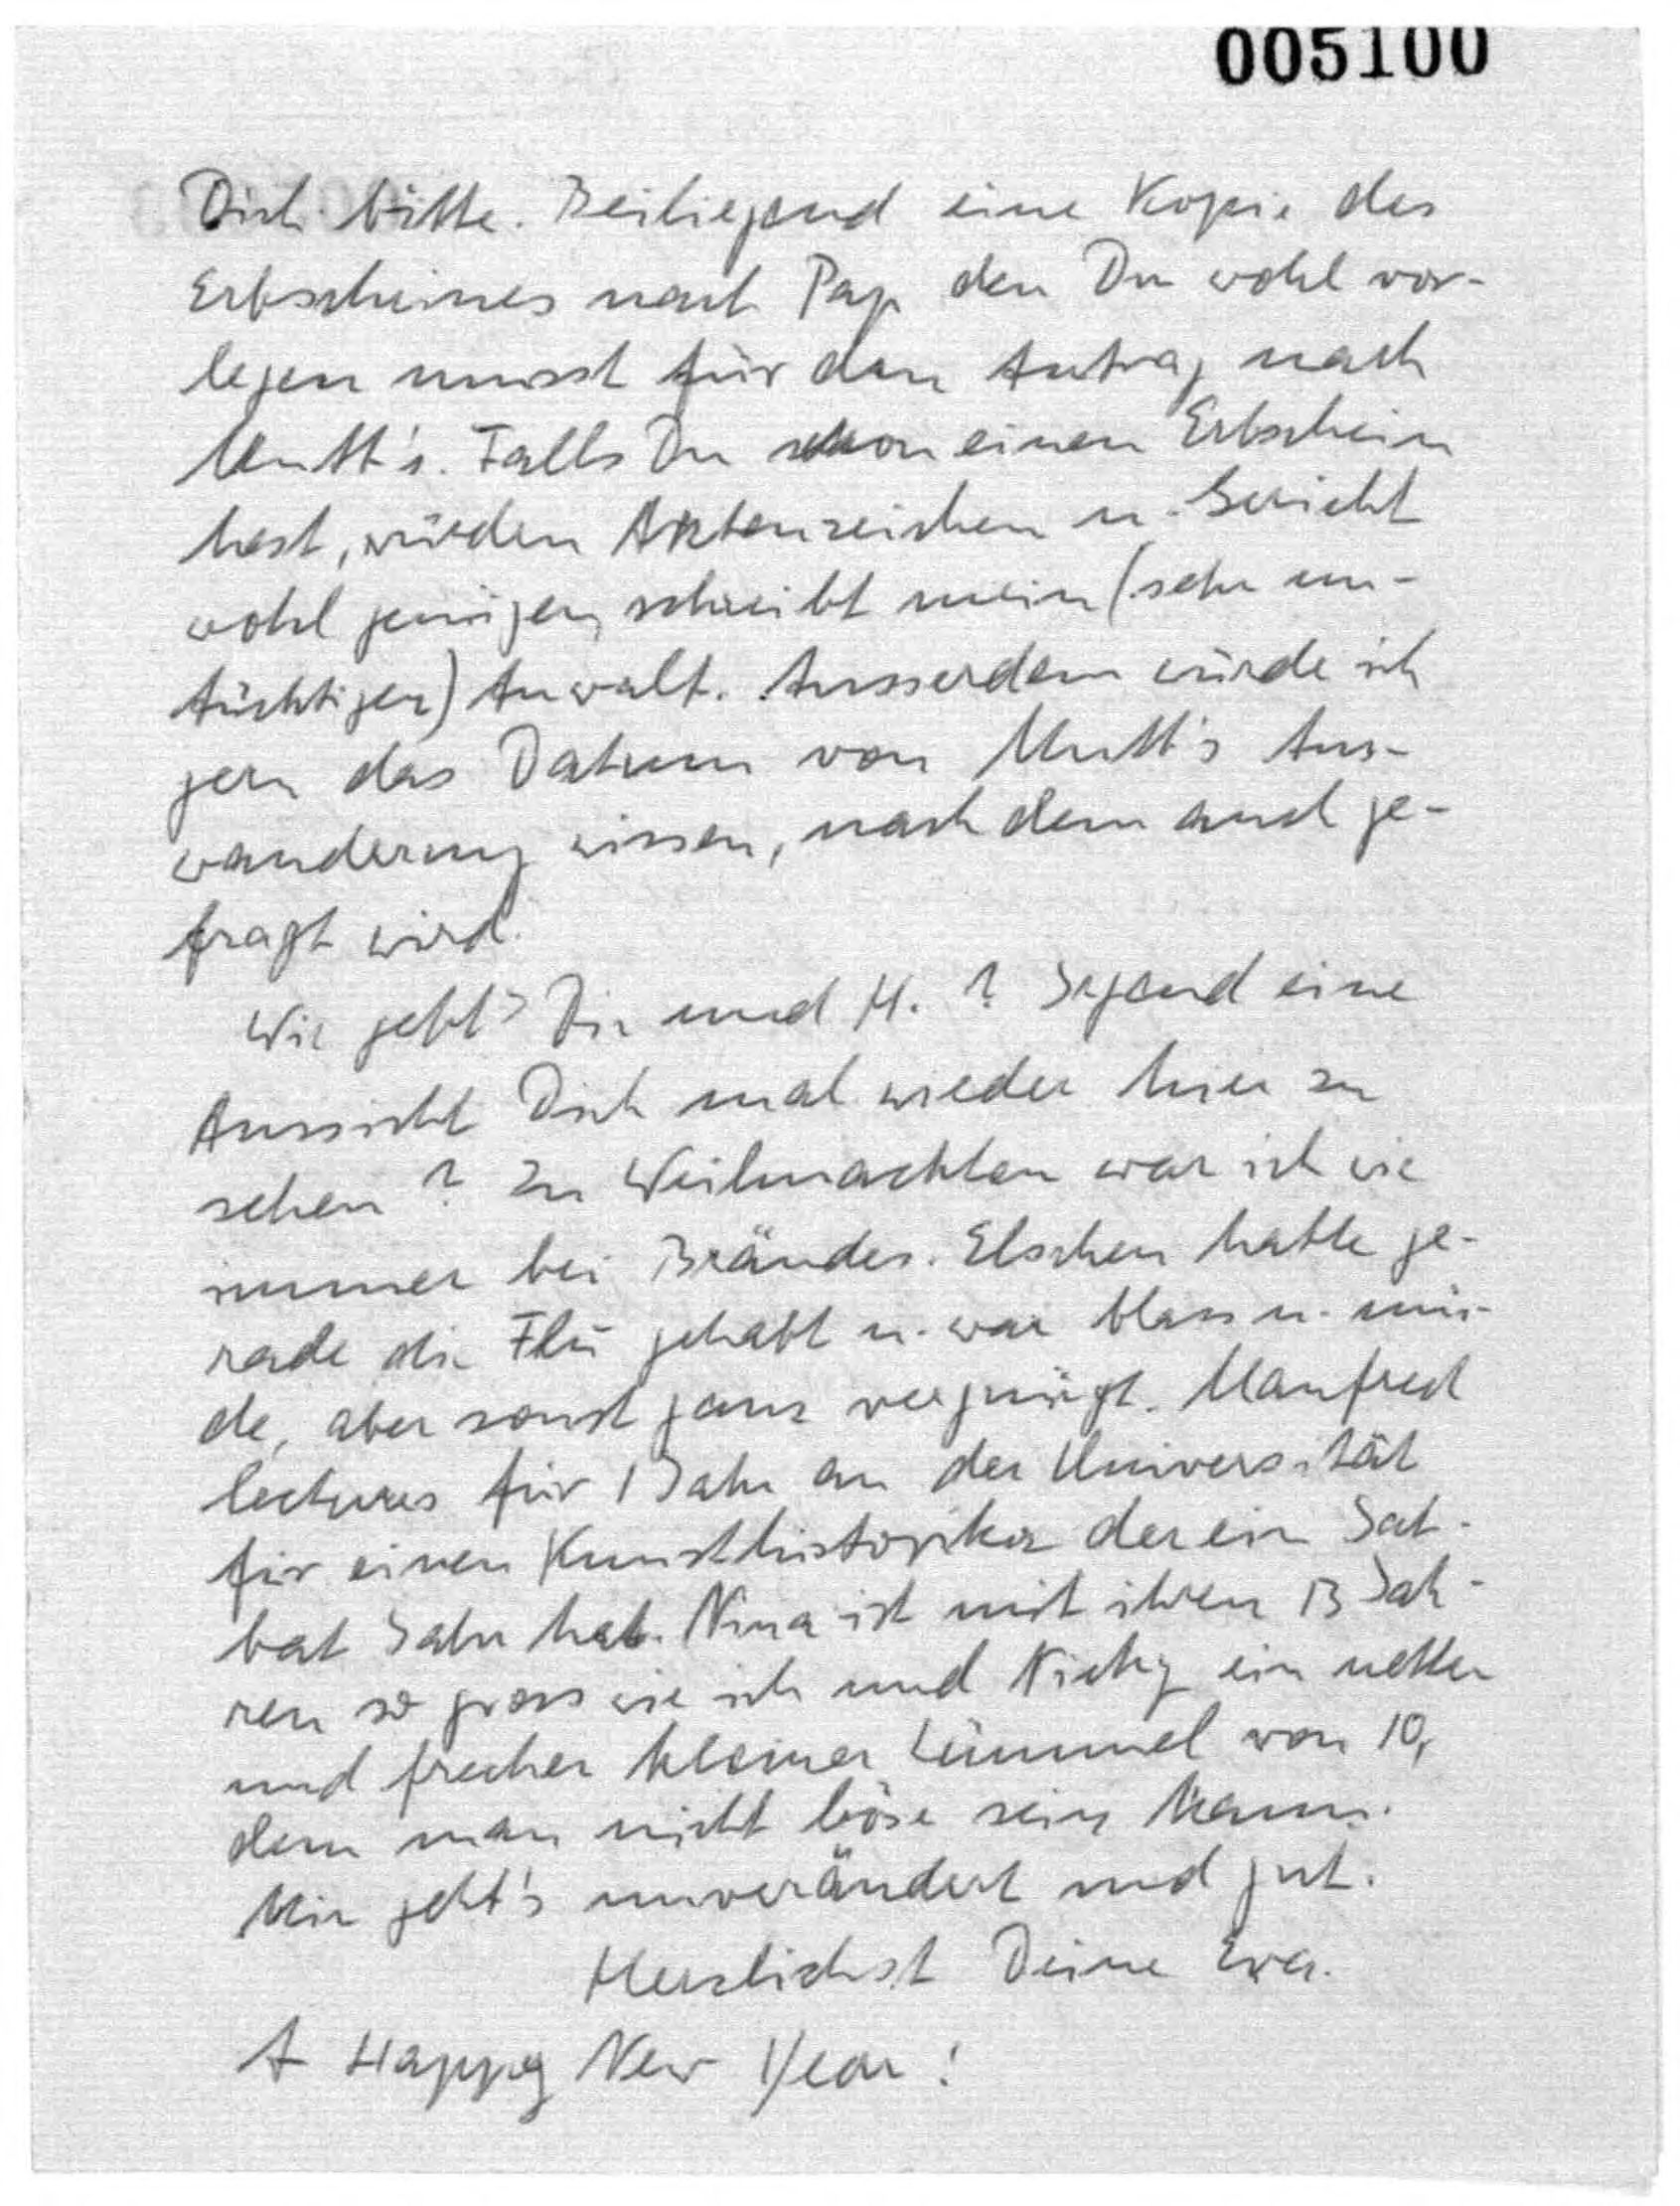 005100
Dich bitte. Beiliegend eine Kopie des
Erbscheines nach Pap den Du wohl vor-
legen musst für den Antrag nach
Mutt's. Falls Du schon einen Erbschein
hast, würden Aktenzeichen u. Gericht
wohl genügen, schreibt mein (sehr un-
tüchtiger) Anwalt. Ausserdem würde ich
gern das Datum von Mutt's Aus-
wanderung wissen, nach dem auch ge-
fragt wird.
Wie geht's Dir und H. ? Irgend eine
Aussicht Dich mal wieder hier zu
sehen ? Zu Weihnachten war ich wie
immer bei Brändes. Elschen hatte ge-
rade die Flu gehabt u. war blass u. mü-
de, aber sonst ganz vergnügt. Manfred
lectures für 1 Jahr an der Universität
für einen Kunsthistoriker der ein Sab-
bat Jahr hat. Nina ist mit ihren 13 Jah-
ren so gross wie ich und Nicky ein netter
und frecher kleiner Lümmel von 10,
dem man nicht böse sein kann.
Mir geht's unverändert und gut.
Herzlichst Deine Eva.
A Happy New Year !